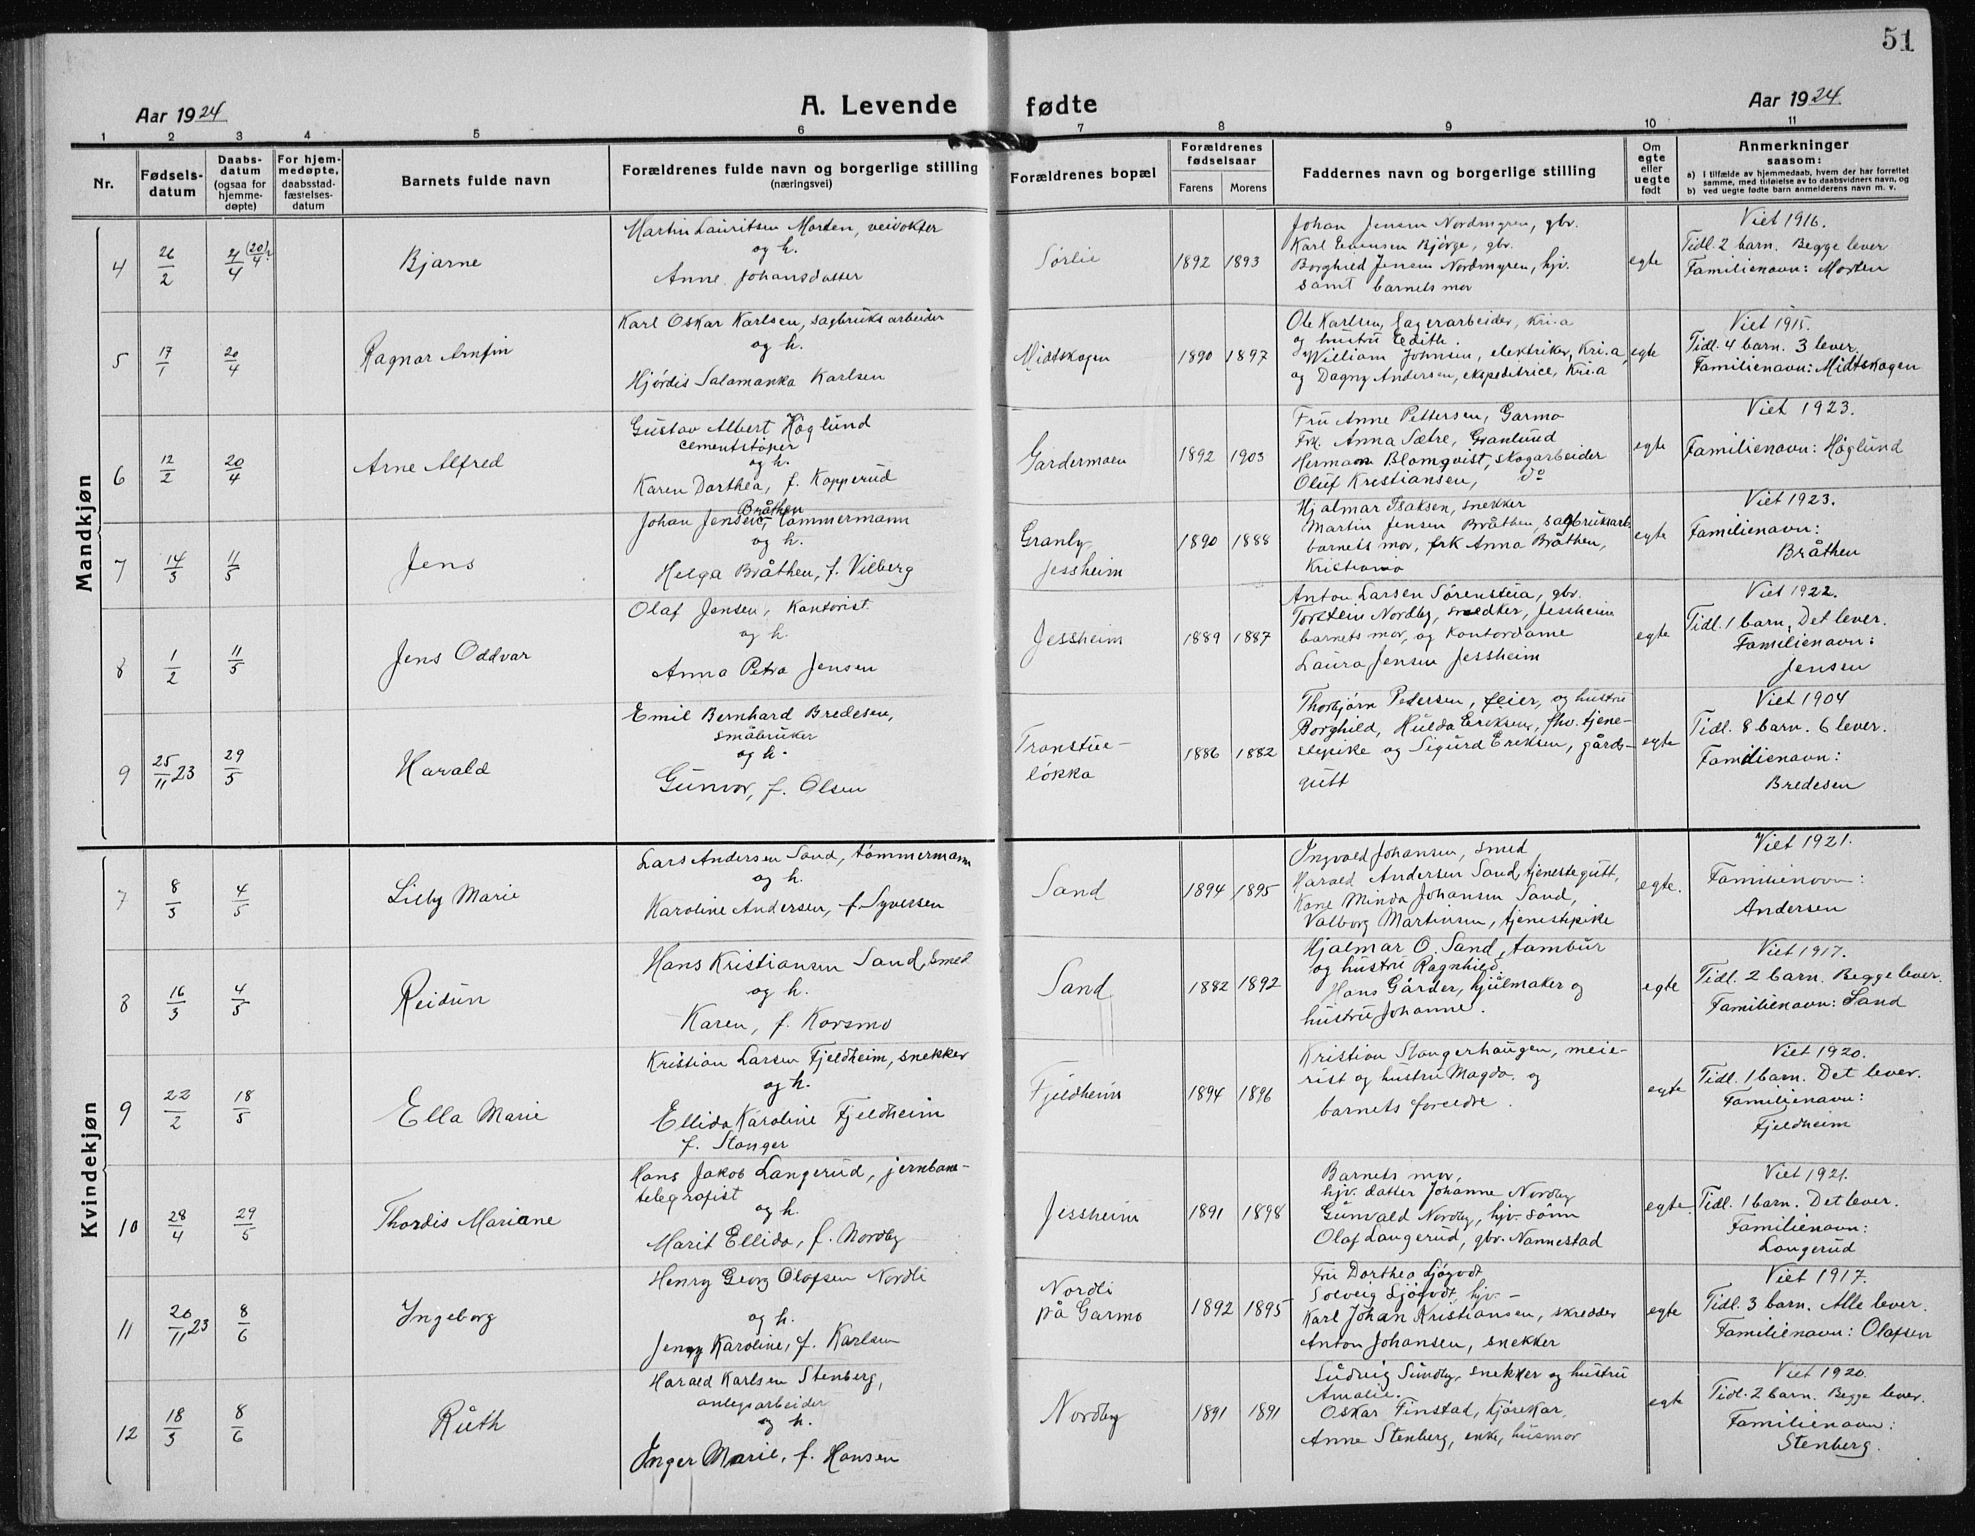 51
Aar 1924
A. Levende fødte
Aar 1924
1 2 3 4 5 6 7 8 9 10 11
Nr.
Fødsels-
datum
Daabs-
datum
(ogsaa for
hjemme-
døpte)
For hjem-
medøpte,
daabsstad-
fæstelses-
datum
Barnets fulde navn
Forældrenes fulde navn og borgerlige stilling
(næringsvei)
Forældrenes bopæl
Forældrenes
fødselsaar
Farens Morens
Faddernes navn og borgerlige stilling
Om
egte
eller
uegte
født
Anmerkninger
saasom:
a) i tilfælde av hjemmedaab, hvem der har forrettet
samme, med tilføielse av to daabsvidners navn, og
b) ved uegte fødte barn anmelderens navn m. v.
Mandkjøn
4
26/2
4/4 (20/4)?
Bjarne
Martin Lauritsen Morten, veivokter
og h.
Anne Johansdatter
Sørlie
1892 1893
Johan Jensen Nordmyren, gbr.
Karl Evensen Bjørge, gbr.
Borghild Jensen Nordmyren, hjv.
samt barnets mor
egte
Viet 1916.
Tidl. 2 barn. Begge lever
Familienavn: Morten
5
17/1
20/4
Ragnar Arnfin
Karl Oskar Karlsen, sagbruksarbeider
og h.
Hjørdis Salamanka Karlsen
Midtskogen
1890 1897
Ole Karlsen, lagerarbeider, Kri.a
og hustru Edith.
William Johnsen, elektriker, Kri.a,
og Dagny Andersen, ekspeditrice, Kri.a
egte
Viet 1915.
Tidl. 4 barn. 3 lever.
Familienavn: Midtskogen
6
12/2
20/4
Arne Alfred
Gustav Albert Höglund
cementstøper
og h.
Karen Dorthea, f. Kopperud
Gardermoen
1892 1903
Fru Anne Pettersen, Garmo
Frk. Anna Sætre, Granlund
Hermann Blomqvist, skogarbeider
Oluf Kristiansen, do
egte
Viet 1923.
Familienavn: Höglund
7
14/3
11/5
Jens
Bråthen
Johan Jensen, tømmermann
og h.
Helga Bråthen, f. Vilberg
Granly
Jessheim
1890 1888
Hjalmar Isaksen, snekker
Martin Jensen Bråthen, sagbruksarb.
barnets mor, frk Anna Bråthen,
Kristiania
egte
Viet 1923.
Familienavn:
Bråthen
8
1/2
11/5
Jens Oddvar
Olaf Jensen, Kontorist
og h.
Anna Petra Jensen
Jessheim
1889 1887
Anton Larsen Sørensteia, gbr.
Torstein Nordby, snedker, Jessheim
barnets mor, og Kontordame
Laura Jensen Jessheim
egte
Viet 1922.
Tidl. 1 barn, Det lever.
Familienavn:
Jensen
9
25/11 23
29/5
Harald
Emil Bernhard Bredesen,
småbruker
og h.
Gunvor, f. Olsen
løkka
1886 1882
Thorbjørn Pedersen, feier, og hustru
Borghild, Hulda Eriksen, fhv. tjene-
stepike og Sigurd Eriksen, gårds-
gutt
egte
Viet 1904
Tidl. 8 barn. 6 lever.
Familienavn:
Bredesen
Kvindekjøn
7
8/3
4/5
Lilly Marie
Lars Andersen Sand, tømmermann
og h.
Karoline Andersen, f. Syversen
Sand
1894 1895
Ingvald Johansen, smed
Harald Andersen Sand, tjenestegutt,
Kone Minda Johansen Sand,
Valborg Martinsen, tjenestepike
egte.
Viet 1921.
Familienavn:
Andersen
8
16/3
4/5
Reidun
Hans Kristiansen Sand, smed
og h.
Karen, f. Korsmo
Sand
1882 1892
Hjalmar O. Sand, tambur
og hustru Ragnhild.
Hans Garder, hjulmaker og
hustru Johanne.
egte
Viet 1917.
Tidl. 2 barn. Begge lever.
Familienavn: Sand
9
22/2
18/5
Ella Marie
Kristian Larsen Fjeldheim, snekker
og h.
Ellida Karoline Fjeldheim
f. Stanger
Fjeldheim
1894 1896
Kristian Stangerhaugen, meie-
rist og hustru Magda. og
barnets foreldre.
egte
Viet 1920.
Tidl. 1 barn. Det lever.
Familienavn:
Fjeldheim
10
28/4
29/5
Thordis Mariane
Hans Jakob Langerud, jernbane-
telegrafist
og h.
Marit Ellida, f. Nordby
Jessheim
1891 1898
Barnets mor,
hjv. datter Johanne Nordby
Gunvald Nordby, hjv. sønn
Olaf Langerud, gbr. Nannestad
egte.
Viet 1921.
Tidl. 1 barn. Det lever.
Familienavn:
Langerud
11
20/11 23
8/6
Ingeborg
Henry Georg Olafsen Nordli
og h.
Jenny Karoline, f. Karlsen
Nordli
på Garmo
1892 1895
Fru Dorthea Sjøgvdt
Solveig Sjøgvdt, hjv. -
Karl Johan Kristiansen, skredder
Anton Johansen, snekker
egte
Viet 1917.
Tidl. 3 barn. Alle lever.
Familienavn: Olafsen
12
18/3
8/6
Ruth
Harald Karlsen Stenberg,
anlegsarbeider
og h.
Inger Marie, f. Hansen
Nordby
1891 1891
Ludvig Sundby, snekker og hustru
Amalie.
Oskar Finstad, kjørekar,
Anne Stenberg, enke, husmor
egte
Viet 1920.
Tidl. 2 barn. Begge lever.
Familienavn:
Stenberg.